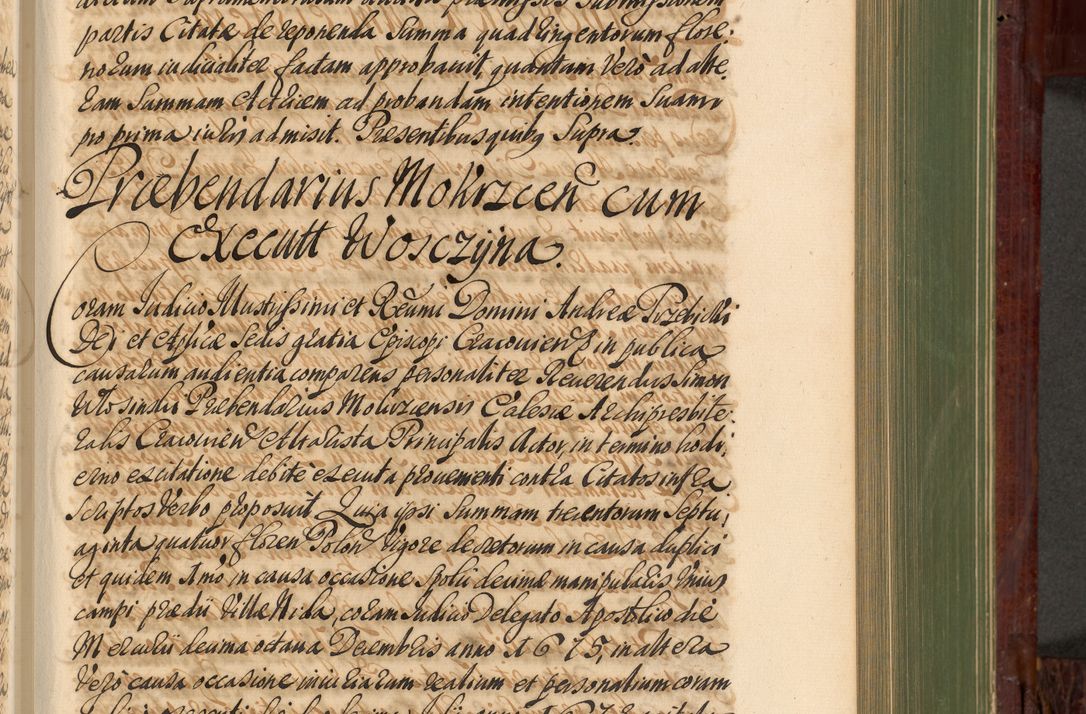 partis Citatæ de reponenda Summa quadringentorum flore-
norum iudicialiter factam approbauit, quantam Verò ad alte-
ram Summam Actricem ad probandam intentionem Suam
pro prima iuris admisit. Præsentibus quibq Supra.
Præbendarius Mokrzcen cum
Executt Wosczyna.
Coram Iudicio Illustrissimi et Reumi Domini Andreæ Trzebicki
Dei et Aplicæ Sedis gratia Episcopi Cracouien in publica
causarum audientia comparens personaliter Reuerendus Simon
Præbendarius Mokrzcensis Ecclesiæ Archipresbite-
ralis Cracouien Altarista Principalis Actor, in termino hodi,
erno ex citatione debitè executa proueniente contra Citatos infra
Scriptos Verbo proposuit Quia ipsi Summam trecentorum Septu,
aginta quatuor floren Polon Vigore decretorum in causa duplici
et quidem Imò in causa occasione Spolii decimæ manipularis Vnius
campi prædii Villæ Nida, coram Iudicio Delegato Apostlico die
Mercurii decima octaua Decembris anno 1675, in altera
Verò causa occasione iniuriarum realium et personalium coram